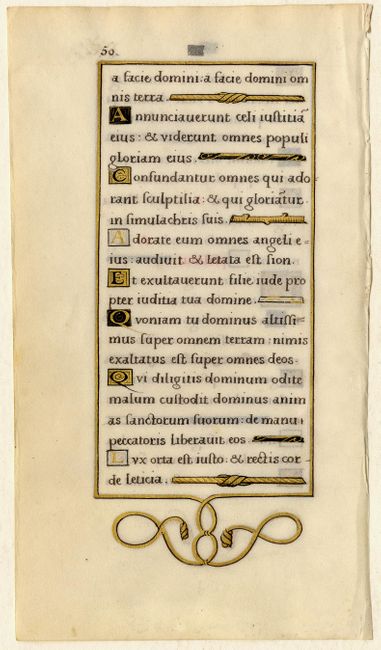 50.
a facie domini: a facie domini om
nis terra.
Annunciaverunt celi iustitiā
eius: & viderunt omnes populi
gloriam eius.
Confundantur omnes qui ado
rant sculptilia: & qui gloriātur
in simulachris suis.
Adorate eum omnes angeli e-
ius: audivit & letata est sion.
Et exultaverunt filie iude pro
pter iuditia tua domine.
Qvoniam tu dominus altissi-
mus super omnem terram: nimis
exaltatus est super omnes deos.
Qvi diligitis dominum odite
malum custodit dominus anim
as sanctorum suorum: de manu
peccatoris liberavit eos.
Lvx orta est iusto: & rectis cor-
de leticia.